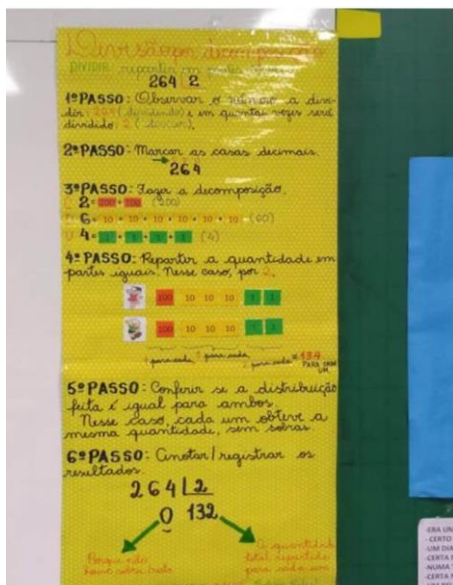 Divisão por decomposição
DIVIDIR: repartir em partes iguais
264 2
1º PASSO: Observar o número a divi-
dir: 264 (dividendo) e em quantas vezes será
dividido: 2 (divisor).
2º PASSO: Marcar as casas decimais.
264
3º PASSO: Fazer a decomposição.
2 = 100 + 100 (200)
6 = 10 + 10 + 10 + 10 + 10 + 10 (60)
4 = 1 + 1 + 1 + 1 (4)
4º PASSO: Repartir a quantidade em
partes iguais. Nesse caso, por 2.
100 10 10 10 1 1
100 10 10 10 1 1
1 para cada 3 para cada 2 para cada
PARA CADA UM
5º PASSO: Conferir se a distribuição
feita é igual para ambos.
Nesse caso, cada um obteve a
mesma quantidade, sem sobras.
6º PASSO: Anotar/registrar os
resultados.
264 2
0 132
Porque não
houve sobra/resto
a quantidade
total repartida
para cada um
-ERA UM
- CERTO
-UM DIA
-CERTA
-NUMA
-CERTA